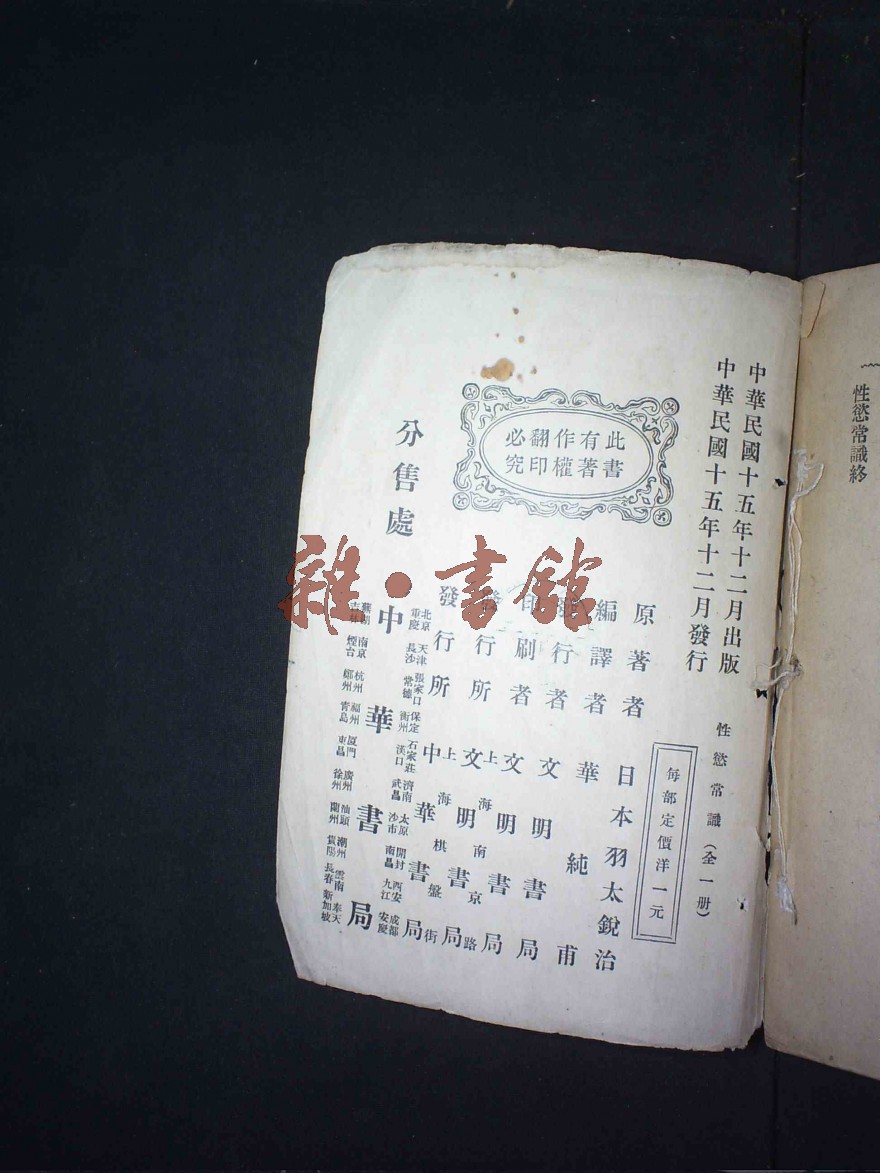 性慾常識終
中華民國十五年十二月出版
中華民國十五年十二月發行
性慾常識（全一册）
每部定價洋一元
此書有著作權翻印必究
原著者 日本羽太銳治
編譯者 華純甫
行者 文明書局
印刷者 上海南京路 文明書局
行所 上海棋盤街 文明書局
發行所 中華書局
分售處
中華書局
北京 天津 張家口 保定 石家莊 濟南 太原 開封 西安 成都
重慶 長沙 常德 衡州 漢口 武昌 沙市 南昌 九江 安慶
蕪湖 南京 杭州 福州 厦門 廣州 汕頭 潮州 雲南 奉天
吉林 煙台 鄭州 青島 東昌 徐州 蘭州 長春 新加坡
雜·書館